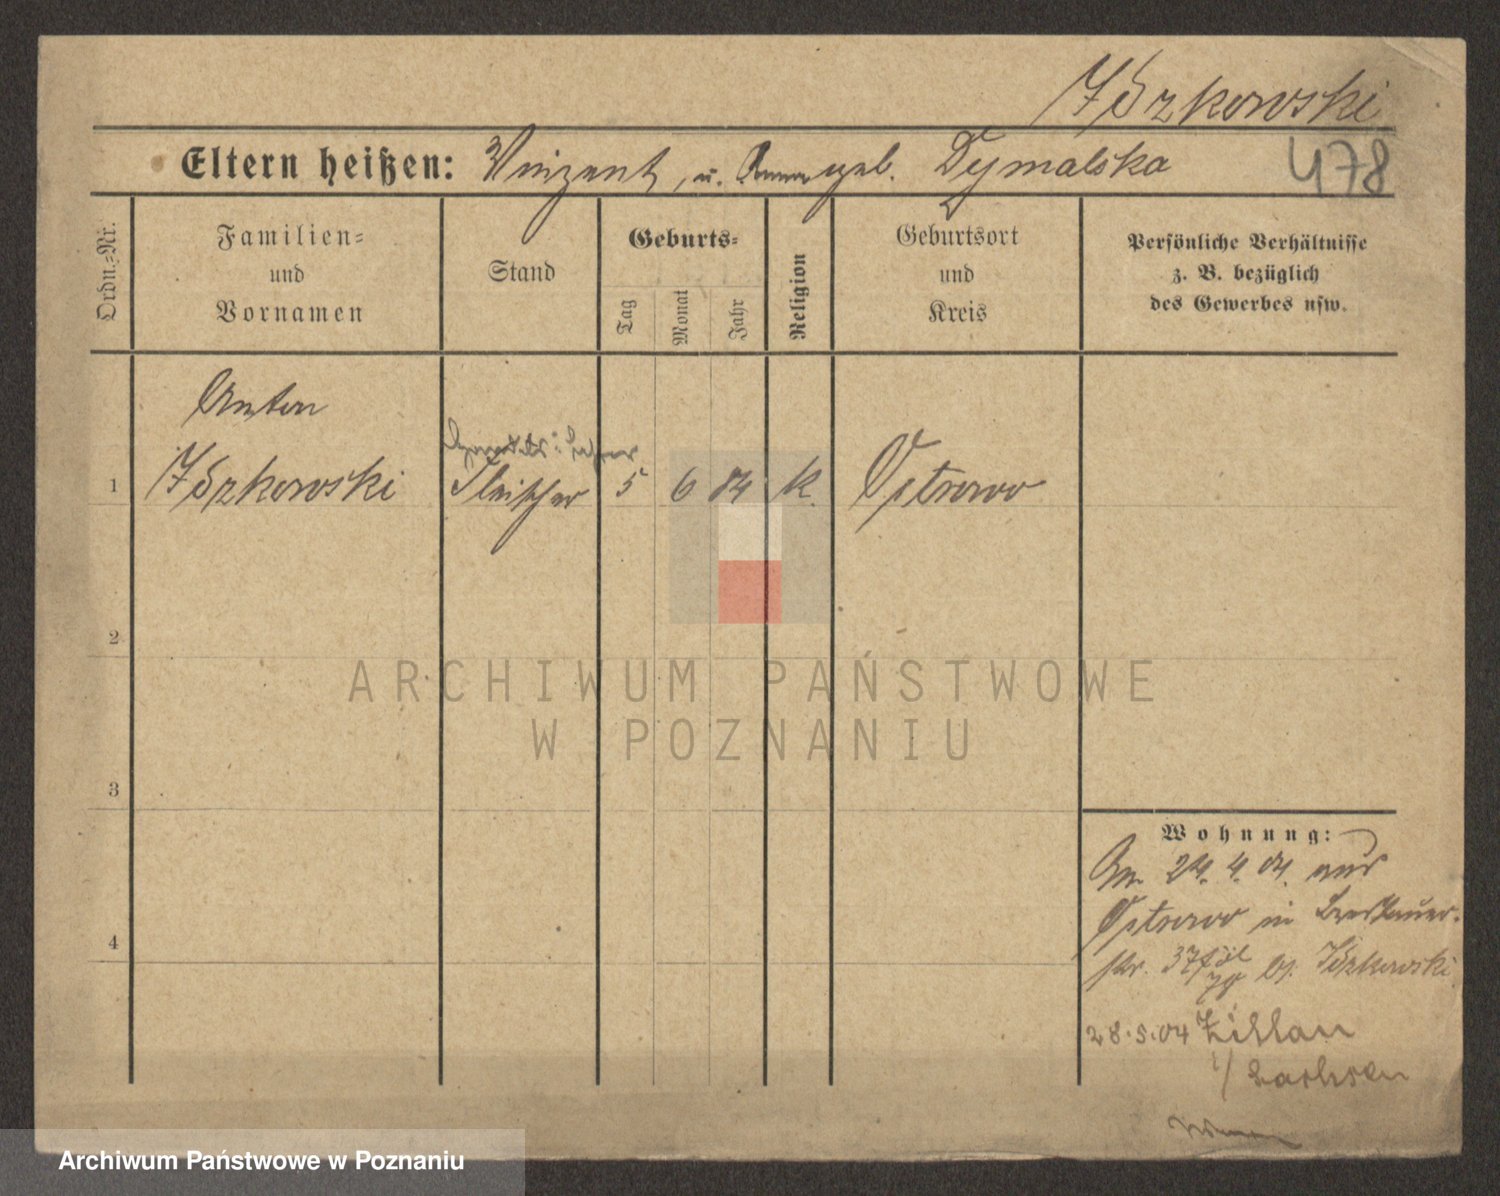 Idzkowski
Eltern heißen: Vinzent, u. Anna geb. Dymalska
478
Ordn.-Nr.
Familien-
und
Vornamen
Stand
Geburts-
Tag
Monat
Jahr
Religion
Geburtsort
und
Kreis
Persönliche Verhältnisse
z. B. bezüglich
des Gewerbes usw.
Anton
1 Idzkowski Fleischer 5 6 84 k. Ostrowo
2
3
4
ARCHIWUM PAŃSTWOWE
W POZNANIU
Wohnung:
Am 24. 4. 04. aus
Ostrowo in Breslauer-
str. 37 bei Idzkowski
28.5.04 Zittau
i/ Sachsen
Archiwum Państwowe w Poznaniu